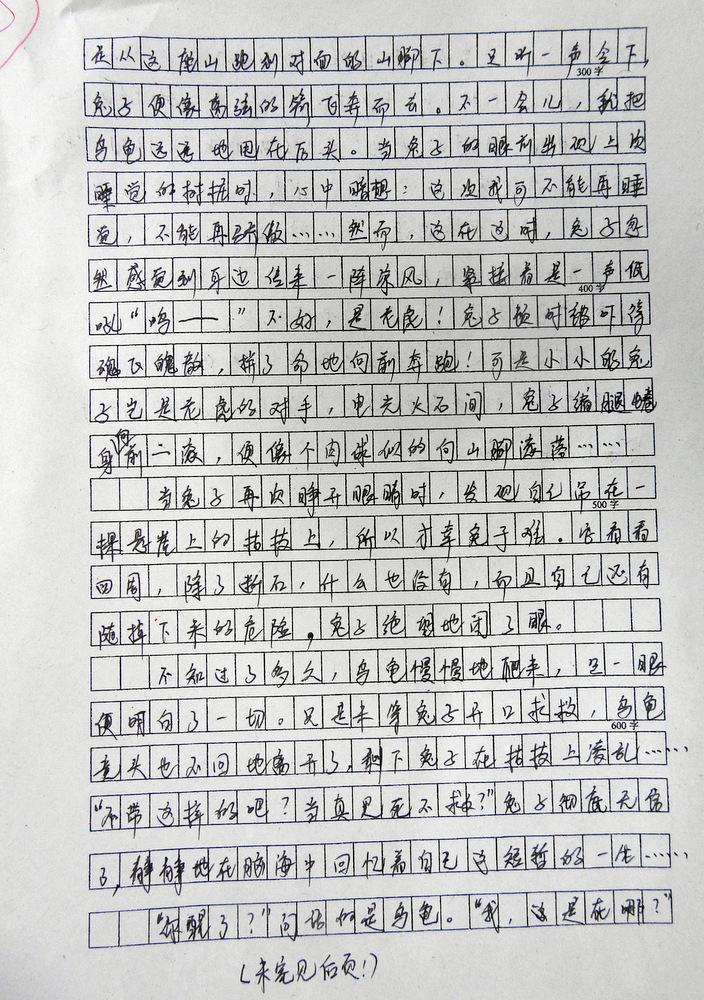 是从这座山跑到对面的山脚下。只听一声令下,
300字
兔子便像离弦的箭飞奔而去。不一会儿,就把
乌龟远远地甩在后头。当兔子的眼前出现上次
睡觉的树桩时,心中暗想:这次我可不能再睡
觉,不能再骄傲……然而,这在这时,兔子忽
然感觉到耳边传来一阵凉风,紧接着是一声低
400字
吼“呜——”不好,是老虎!兔子顿时被吓得
魂飞魄散,拼了命地向前奔跑!可是小小的兔
子岂是老虎的对手,电光火石间,兔子缩腿蜷
身向前一滚,便像个肉球似的向山脚滚落……
当兔子再次睁开眼睛时,发现自己吊在一
500字
棵悬崖上的枯枝上,所以才幸免于难。看看
四周,除了断石,什么也没有,而且自己还有
随掉下来的危险。兔子绝望地闭了眼。
不知过了多久,乌龟慢慢地爬来,一眼
便明白了一切。只是未等兔子开口求救,乌龟
600字
竟头也不回地离开了,剩下兔子在枯枝上凌乱……
“不带这样的吧?当真见死不救?”兔子彻底无信
了,静静地在脑海中回忆着自己这短暂的一生……
“你醒了?”问话的是乌龟。“我,这是在哪?”
(未完见后页!)